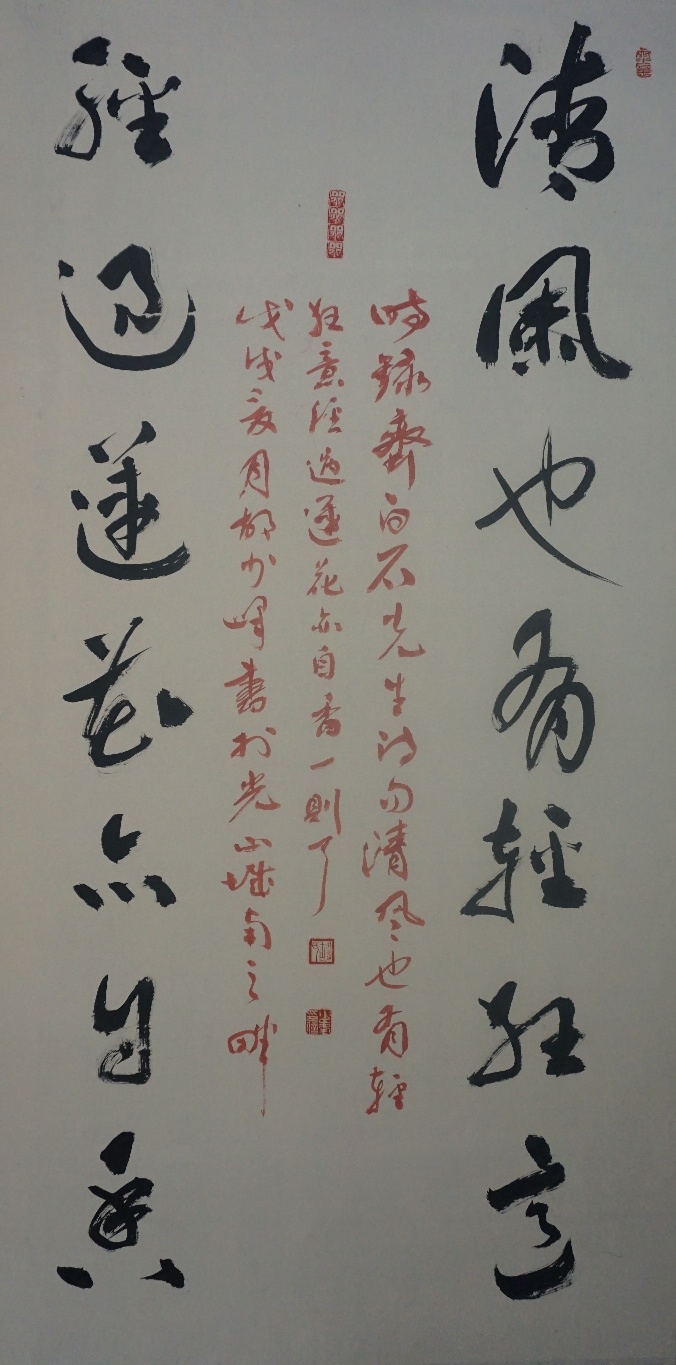 清風也有輕狂意
經過蓮花亦自香
時錄齊白石先生詩句清風也有輕
狂意經過蓮花亦自香一則了
戊戌夏月胡少峰書於光山城南之畔